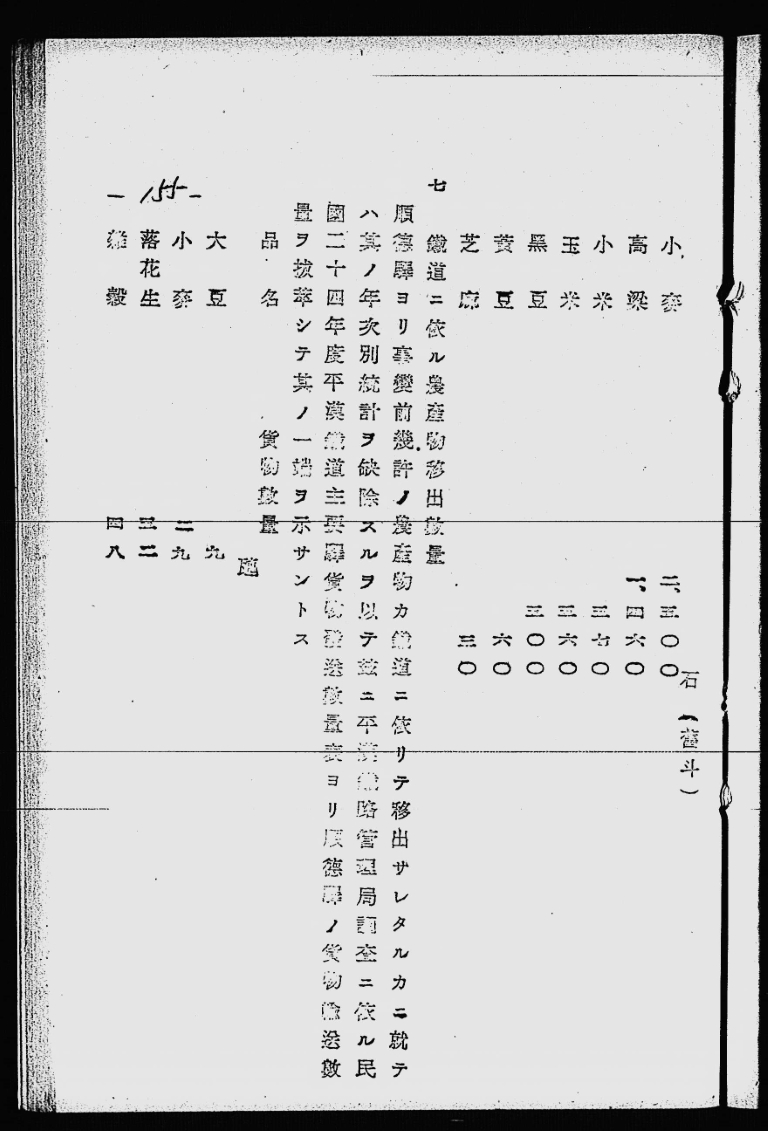 石(舊斗)
小麥 二、五〇〇
高粱 一、四六〇
小米 三七〇
玉米 三六〇
黑豆 三〇〇
黃豆 六〇
芝麻 三〇
七 鐵道ニ依ル農產物移出數量
順德驛ヨリ事變前幾許ノ農產物カ鐵道ニ依リテ移出サレタルカニ就テ
ハ其ノ年次別統計ヲ缺除スルヲ以テ玆ニ平漢鐵路管理局調查ニ依ル民
國二十四年度平漢鐵道主要驛貨物發送數量表ヨリ順德驛ノ貨物輸送數
量ヲ拔萃シテ其ノ一端ヲ示サントス
品名 貨物數量
瓲
大豆 九
小麥 二九
落花生 三二
雜穀 四八
— 155 —